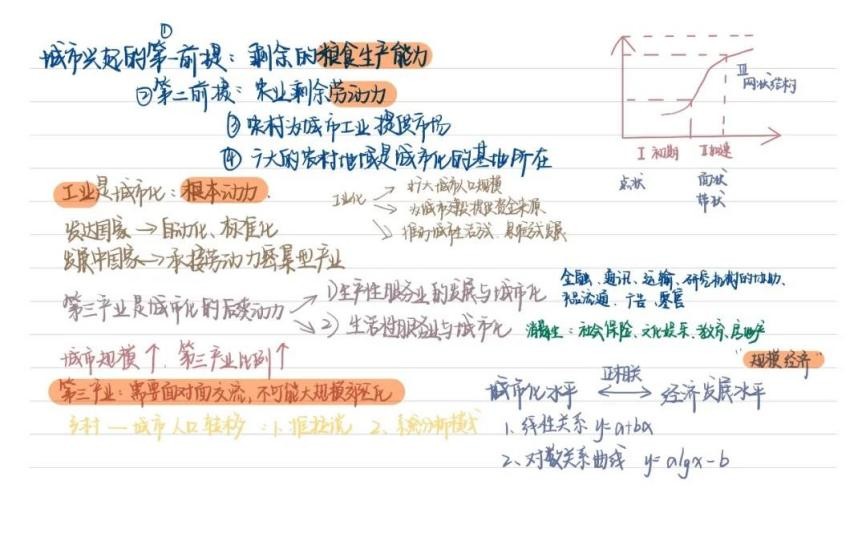 ①
城市兴起的第一前提：剩余的粮食生产能力
②第二前提：农业剩余劳动力
③农村为城市工业提供市场
④广大的农村地域是城市化的基地所在
Ⅲ
网状结构
Ⅰ初期 Ⅱ加速
点状 面状
带状
工业是城市化：根本动力.
工业化
扩大城市人口规模
为城市建设提供资金来源
推动城市生活方式
发达国家→自动化、标准化
发展中国家→承接劳动力密集型产业
第三产业是城市化的后续动力
1)生产性服务业的发展与城市化
金融、通讯、运输、研究机构的协助、
流通、广告
2）生活性服务业与城市化
消费性：社会保险、文化娱乐、教育、房地产
城市规模↑，第三产业比例↑
"规模经济"
第三产业：需要面对面交流，不可能大规模郊区化
城市化水平 正相关 经济发展水平
乡村—城市人口转移：1、推拉说 2、系统分析模式
1、线性关系 y=a+bx
2、对数关系曲线 y=algx-b